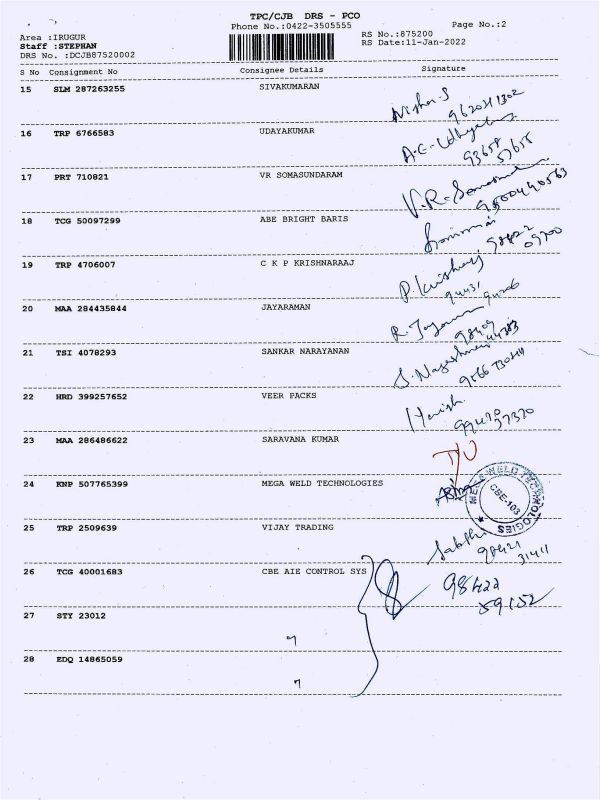 TPC/CJB DRS - PCO
Phone No.:0422-3505555 Page No.:2
Area :IRUGUR RS No.:875200
Staff :STEPHAN RS Date:11-Jan-2022
DRS No. :DCJB87520002
S No Consignment No Consignee Details Signature
15 SLM 287263255 SIVAKUMARAN
16 TRP 6766583 UDAYAKUMAR
93658
57655
17 PRT 710821 VR SOMASUNDARAM
18 TCG 50097299 ABE BRIGHT BARIS
98422
09700
19 TRP 4706007 C K P KRISHNARAAJ
20 MAA 284435844 JAYARAMAN
21 TSI 4078293 SANKAR NARAYANAN
22 HRD 399257652 VEER PACKS
Harish
99470
37370
23 MAA 286486622 SARAVANA KUMAR
24 KNP 507765399 MEGA WELD TECHNOLOGIES
MEGA WELD TECHNOLOGIES
CBE-103
25 TRP 2509639 VIJAY TRADING
98421
31411
26 TCG 40001683 CBE AIE CONTROL SYS
98422
59152
27 STY 23012
28 EDQ 14865059